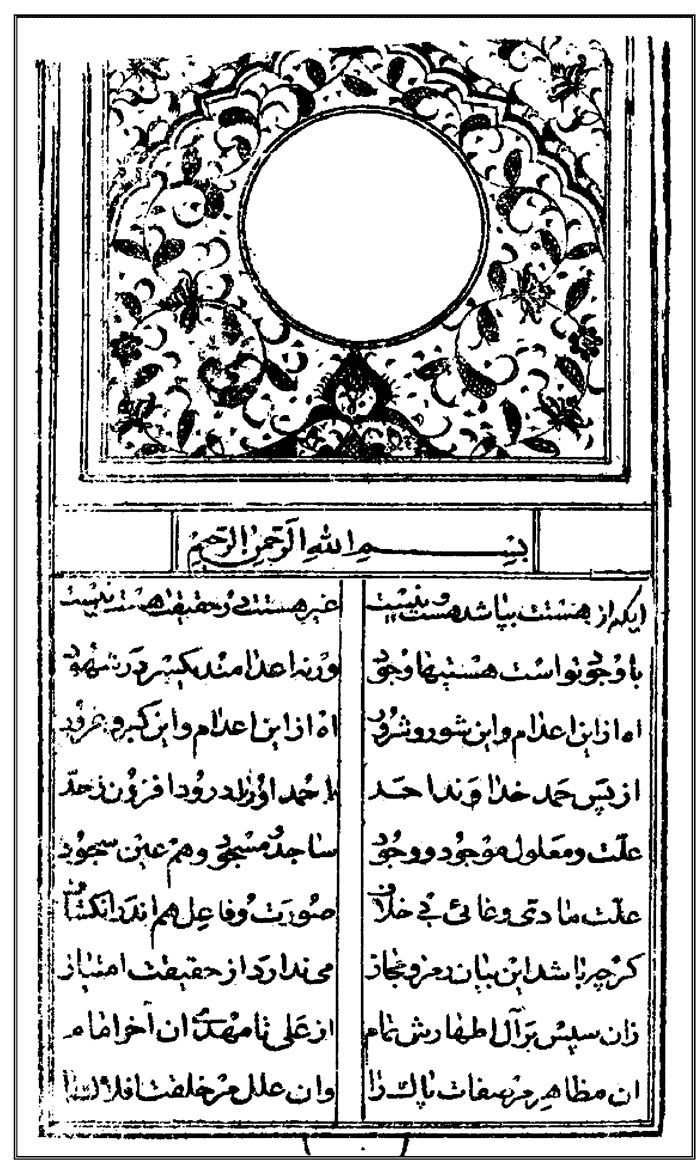 بسم الله الرحمن الرحیم
ایکه از هستت بپا شد هست و نیست غیر هستت در حقیقت هست نیست
با وجود تو است هستیها وجود ورنه اعدامند یکسر در شهود
اه از این اعدام و این شور و شرور اه از این اعدام و این کبر و غرور
از پس حمد خداوند احد با حمد او را درود افزون ز حد
علت و معلول موجود و وجود ساجد و مسجود و هم عین سجود
علت مادی و غائی بی خلاف صورت و فاعل هم اندر انکشاف
کرچه باشد این بیان رمز و مجاز می ندارد از حقیقت امتیاز
زان سپس بر آل اطهارش تمام از علی تا مهدی ان آخر امام
ان مظاهر مر صفات پاک را وان علل مر خلقت افلاک را